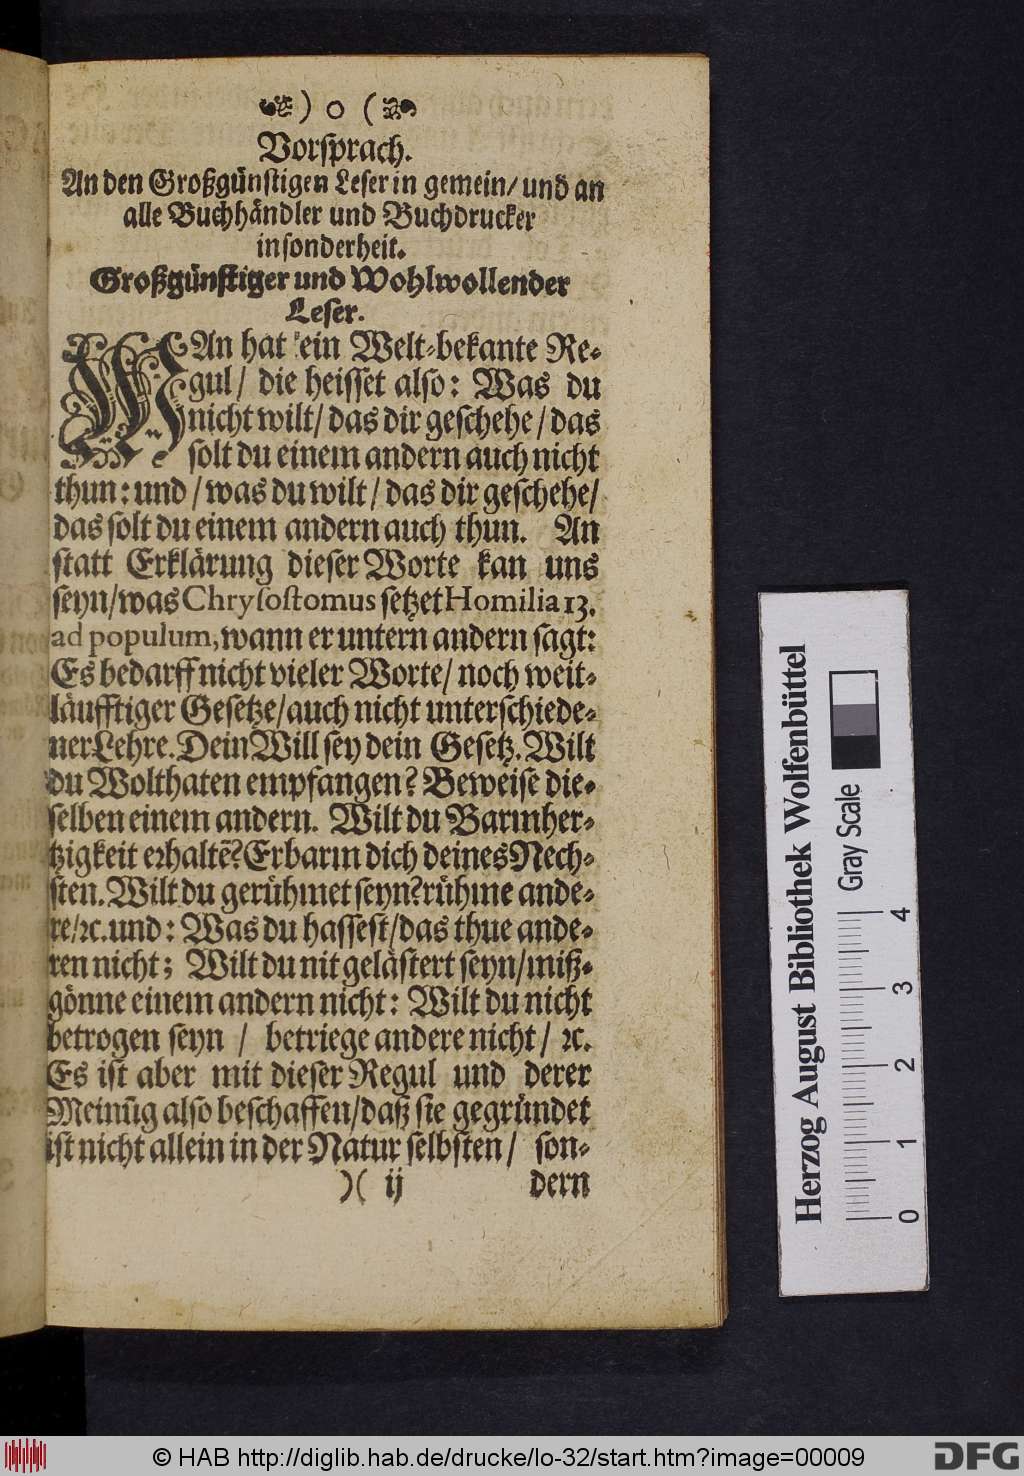 ) o (
Vorsprach.
An den Großgünstigen Leser in gemein/ und an
alle Buchhändler und Buchdrucker
insonderheit.
Großgünstiger und Wohlwollender
Leser.
MAn hat ein Welt-bekante Re-
gul/ die heisset also: Was du
nicht wilt/ das dir geschehe/ das
solt du einem andern auch nicht
thun: und/ was du wilt/ das dir geschehe/
das solt du einem andern auch thun. An
statt Erklärung dieser Worte kan uns
seyn/ was Chrysostomus setzet Homilia 13.
ad populum, wann er untern andern sagt:
Es bedarff nicht vieler Worte/ noch weit-
läufftiger Gesetze/ auch nicht unterschiede-
ner Lehre. Dein Will sey dein Gesetz. Wilt
du Wolthaten empfangen? Beweise die-
selben einem andern. Wilt du Barmher-
tzigkeit erhaltē? Erbarm dich deines Nech-
sten. Wilt du gerühmet seyn? rühme ande-
re/ ꝛc. und: Was du hassest/ das thue ande-
ren nicht; Wilt du nit gelästert seyn/ miß-
gönne einem andern nicht: Wilt du nicht
betrogen seyn / betriege andere nicht/ ꝛc.
Es ist aber mit dieser Regul und derer
Meinūg also beschaffen/ daß sie gegründet
ist nicht allein in der Natur selbsten/ son-
)( ij dern
Herzog August Bibliothek Wolfenbüttel
Gray Scale
0 1 2 3 4
© HAB http://diglib.hab.de/drucke/lo-32/start.htm?image=00009
DFG